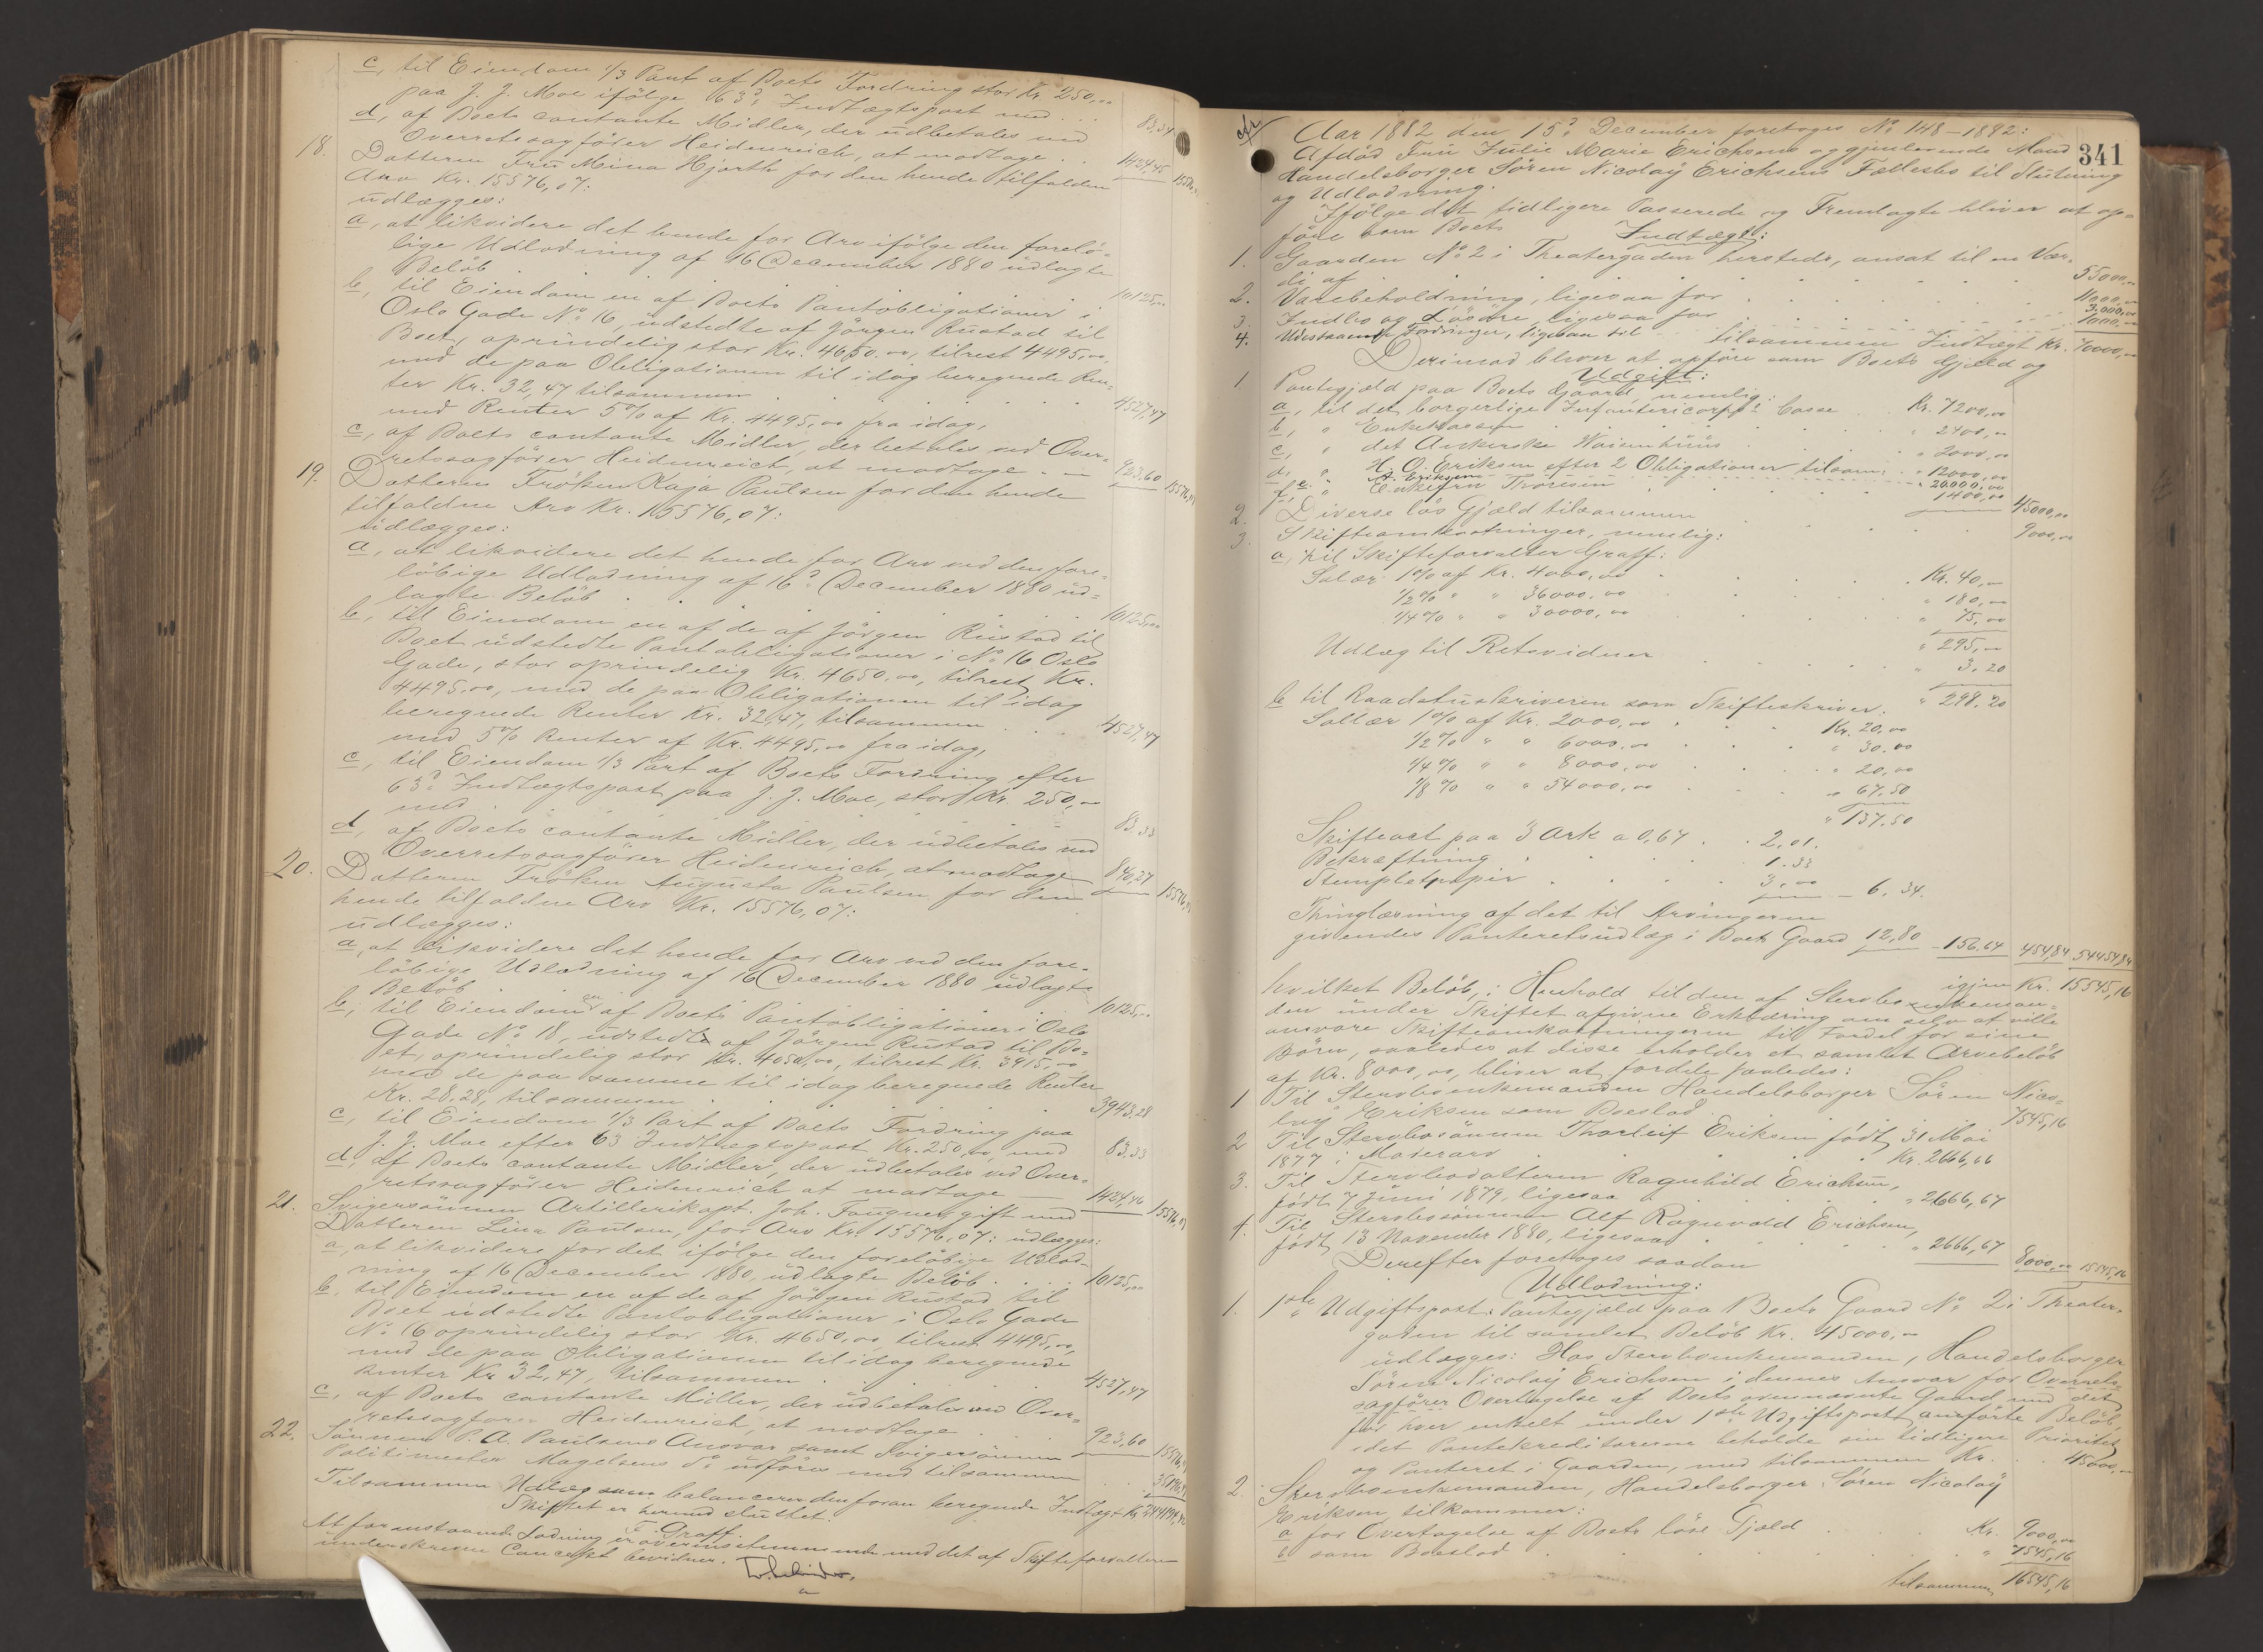 c, til Eiendom 1/3 Part af Boets Fordring stor Kr. 250,00
paa J. J. Moe ifölge 63de Indtægtspost med . . 83,34
d, af Boets contante Midler, der udbetales ved
Overretssagförer Heidenreich, at modtage . . 1424,45
18. Datteren Frü Mina Hjorth for den hende tilfaldne
Arv Kr. 15576,07:
udlægges:
a, at likvidere det hende for Arv ifölge den forelö-
bige Udlodning af 16 December 1880 udlagte
Belöb . . . 10125,00
b, til Eiendom en af Boets Pantobligationer i
Oslo Gade No 16, udstedte af Jörgen Rustad til
Boet, oprindelig stor Kr. 4650.00, tilrest 4495,00,
med de paa Obligationen til idag beregnede Ren-
ter Kr. 32,47 tilsammen . . . 4527,47
med Renter 5% af Kr. 4495,00 fra idag,
c, af Boets contante Midler, der betales ved Over-
retssagförer Heidenreich, at modtage . — 923,60
19. Datteren Fröken Kaja Paulsen for den hende
tilfaldne Arv Kr. 15576,07:
udlægges:
a, at likvidere det hende for Arv ved den fore-
löbige Udlodning af 16de December 1880 ud-
lagte Belöb . . . 10125,00
b, til Eiendom en af de af Jörgen Rustad til
Boet udstedte Pantobligationer i No 16 Oslo
Gade, stor oprindelig Kr. 4650.00, tilrest Kr.
4495.00, med de paa Obligationen til idag
beregnede Renter Kr. 32,47, tilsammen . . . 4527,47
med 5% Renter af Kr. 4495,00 fra idag,
c, til Eiendom 1/3 Part af Boets Fordring efter
63de Indtægtspost paa J. J. Moe, stor Kr. 250,00
med . . . 83,33
d, af Boets contante Midler, der udbetales ved
Overretssagförer Heidenreich, at modtage 840,27
20. Datteren Fröken Augusta Paulsen for den
hende tilfaldne Arv Kr. 15576,07:
udlægges:
a, at likvidere det hende for Arv ved den fore-
löbige Udlodning af 16 December 1880 udlagte
Belöb . . . 10125,00
b, til Eiendom en af Boets Pantobligationer i Oslo
Gade No 18, udstedt af Jörgen Rustad til Bo-
et, oprindelig stor Kr. 4050,00, tilrest Kr. 3915,00
med de paa samme til idag beregnede Renter
Kr. 28,28, tilsammen . . . 3943,28
c, til Eiendom 1/3 Part af Boets Fordring paa
J. J. Moe efter 63 Indtægtspost Kr. 250,00, med 83,33
d, af Boets contante Midler, der udbetales ved Over-
retssagförer Heidenreich at modtage — 1424,46
21. Svigersönnen Artillerikapt. Joh. Fougner, gift med
Datteren Lina Paulsen, for Arv Kr. 15576,07: udlægges:
a, at likvidere for det ifölge den forelöbige Udlod-
ning af 16 December 1880, udlagte Belöb . . . 10125,00
b, til Eiendom en af de af Jörgen Rustad til
Boet udstedte Pantobligationer i Oslo Gade
No 16 oprindelig stor Kr. 4650,00, tilrest 4495,00,
med de paa Obligationen til idag beregnede
Renter Kr 32,47, tilsammen . . . 4527,47
c, af Boets contante Midler, der udbetales ved Over-
retssagförer Heidenreich, at modtage 923,60
22. Sönnen P. A. Paulsens Ansvar samt Svigersönnen
Politimester Magelsens do udföres med tilsammen
Tilsammen Udlæg som balancerer den foran beregnede Indtægt Kr.
Skiftet er hermed sluttet.
F. Graff.
At foranstaaende Lodning er overensstemmende med det af Skifteforvalteren
underskrevne Concept bevidner.
341
Aar 1882 den 15de December foretoges No 148-1882:
Afdöd Frü Julie Marie Erichsens og gjenlevende Mand
Handelsborger Sören Nicolaÿ Erichsens Fællesbo til Slutning
og Udlodning.
Ifölge det tidligere Passerede og Fremlagte bliver at op-
före som Boets Indtægt:
1. Gaarden No 2 i Theatergaden hersteds, ansat til en Vær-
di af . . . 55000,00
2. Varebeholdning, ligesaa for . . . 11000,00
3. Indbo og Lösöre, ligesaa for . . . 3.000,00
4. Udestaaende Fordringer, ligesaa til . . . 1000,00
tilsammen Indtægt Kr. 70000,00
Derimod bliver at opföre som Boets Gjæld og
Udgift:
1. Pantegjæld paa Boets Gaard, nemlig:
a, til det borgerlige Infantericorps's Casse . . Kr. 7200,00
b, " Enkekassen . . . " 2400,00
c, " det Ankerske Waisenhuus . . . " 2000,00
d, " H. O. Eriksen efter 2 Obligationer tilsam: . " 12000,00
e, " A. Eriksen . . . " 20000,00
f, " Enkefru Thoresen . . . 1400,00 45000,00
2. Diverse lös Gjæld tilsammen . . . 9000,00
3. Skifteomkostninger, nemlig:
a, til Skifteforvalter Graff:
Salær 1% af Kr. 4000,00 . . . Kr. 40,00
1/2% " " 36000,00 . . . " 180,00
1/4% " " 30000,00 . . . " 75,00
" 295,00
Udlæg til Retsvidner . . . " 3.20
" 298.20
b, til Raadstuskriveren som Skifteskriver.
Sallær 1% af Kr. 2000,00 . . . Kr. 20,00
1/2% " " 6000,00 . . . " 30.00
1/4% " " 8000,00 . . . " 20,00
1/8% " " 54000,00 . . . " 67.50
" 137.50
Skifteact paa 3 Ark a 0,67 . . 2,01.
Bekræftning . . . 1.33
Stempletpapir . . . 3,00 — 6.34.
Thinglæsning af det til Arvingerne
givendes Panteretsudlæg i Boets Gaard 12,80 - 156.64 454,84 54454,84
igjen Kr. 15545,16
hvilket Belöb, i Henhold til den af Stervboenkeman-
den under Skiftet afgivne Erklæring om selv at ville
ansvare Skifteomkostningerne til Fordel for sine
Börn, saaledes at disse erholder et samlet Arvebelöb
af Kr. 8000,00, bliver at fordele saaledes:
1 Til Stervboenkemanden Handelsborger Sören Nico-
laÿ Eriksen som Boeslod . . . 7545,16
2 Til Stervbosönnen Thorleif Eriksen födt 31 Mai
1877 i Moderarv . . . Kr. 2666,66
3. Til Stervbodatteren Ragnhild Erichsen,
födt 7 Juni 1879, ligesaa . . . " 2666,67
4. Til Stervbosönnen Alf Ragnvald Erichsen,
födt 13 November 1880, ligesaa . . . " 2666,67 8000,00 15545,16
Derefter foretoges saadan
Udlodning:
1. 1ste Udgiftspost: Pantegjæld paa Boets Gaard No 2 i Theater-
gaden til samlet Belöb Kr. 45000,00
udlægges: Hos Stervboenkemanden, Handelsborger
Sören Nicolaÿ Erichsen i dennes Ansvar for Overrets-
sagförer Overtagelse af Boets ovennævnte Gaard med det
for hver enkelt under 1ste Udgiftspost anförte Belöb,
idet Pantekreditorerne beholde sin tidligere Prioritet
og Panteret i Gaarden, med tilsammen Kr. . . 45000,00
2. Stervboenkemanden, Handelsborger Sören Nicolaÿ
Eriksen tilkommer:
a for Overtagelse af Boets löse Gjæld . . . Kr. 9000,00
b som Boeslod . . . " 7545,16
tilsammen 16545,16